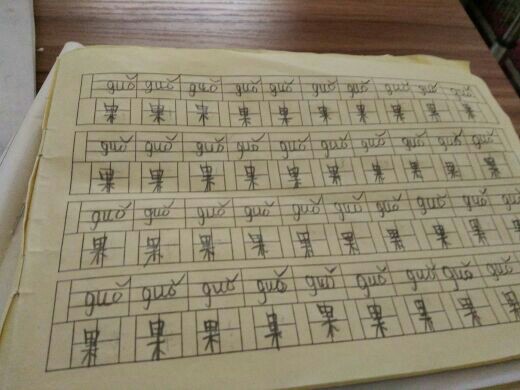 guǒ guǒ guǒ guǒ guǒ guǒ guǒ guǒ guǒ guǒ
果 果 果 果 果 果 果 果 果 果
guǒ guǒ guǒ guǒ guǒ guǒ guǒ guǒ guǒ guǒ
果 果 果 果 果 果 果 果 果 果
guǒ guǒ guǒ guǒ guǒ guǒ guǒ guǒ guǒ guǒ
果 果 果 果 果 果 果 果 果 果
guǒ guǒ guǒ guǒ guǒ guǒ guǒ guǒ guǒ
果 果 果 果 果 果 果 果 果